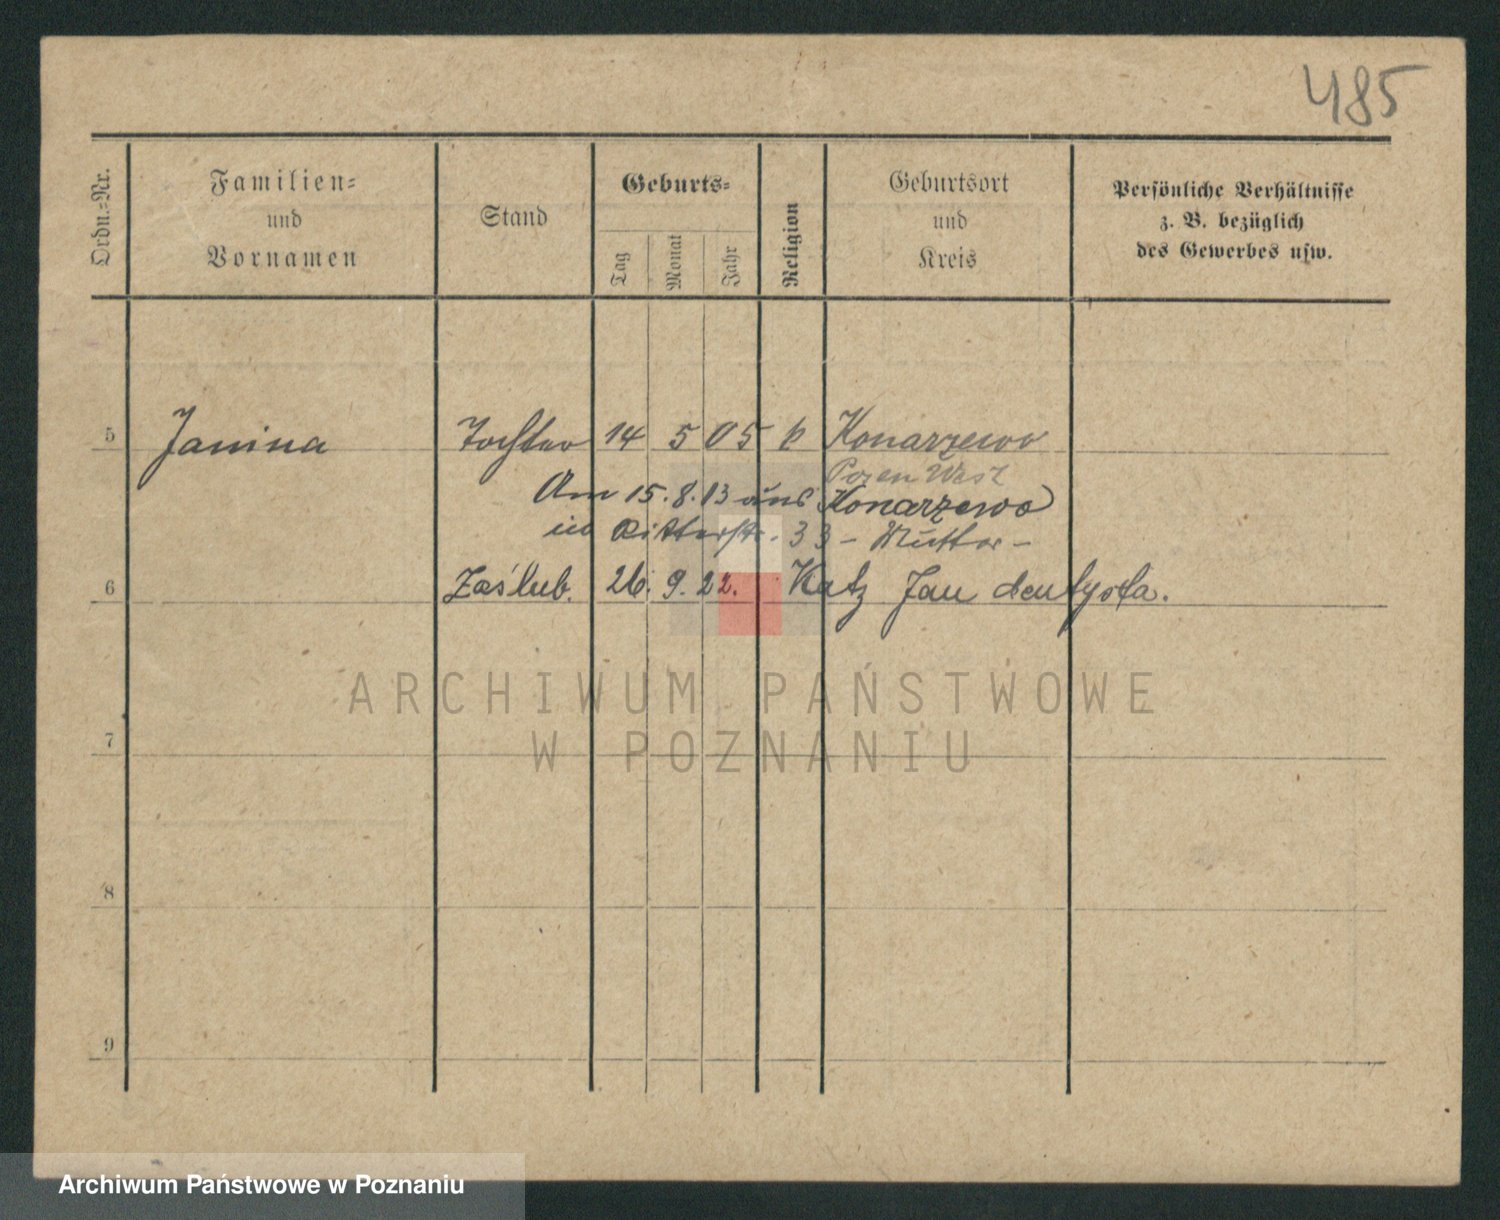 485
Ordn.-Nr.
Familien-
und
Vornamen
Stand
Geburts-
Tag
Monat
Jahr
Religion
Geburtsort
und
Kreis
Persönliche Verhältnisse
z. B. bezüglich
des Gewerbes usw.
5 Janina Tochter 14 5 05 k Konarzewo
Posen West
Am 15.8.13 aus Konarzewo
in Ritterstr. 33 - Mutter -
6 Zaślub. 26. 9. 22. Katz Jan dentysta.
ARCHIWUM PAŃSTWOWE
W POZNANIU
7
8
9
Archiwum Państwowe w Poznaniu